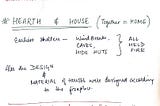 # HEARTH & HOUSE (Together = HOME)
Earliest shelters - Wind Breaks, ALL
CAVES, HELD
HIDE HUTS FIRE
Also the DESIGN
& MATERIAL of HOUSES were designed according
to the fireplace.